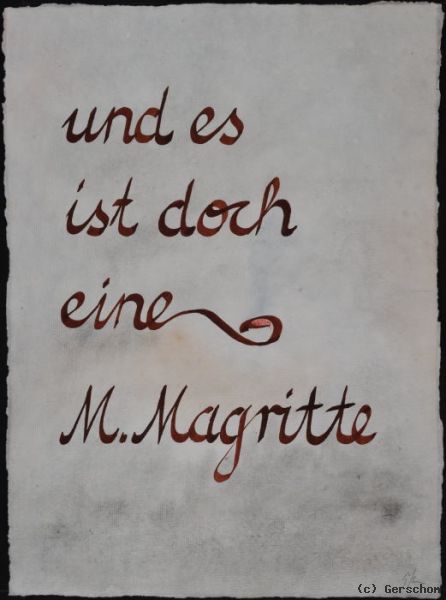 und es
ist doch
eine
M. Magritte
(c) Gerschom